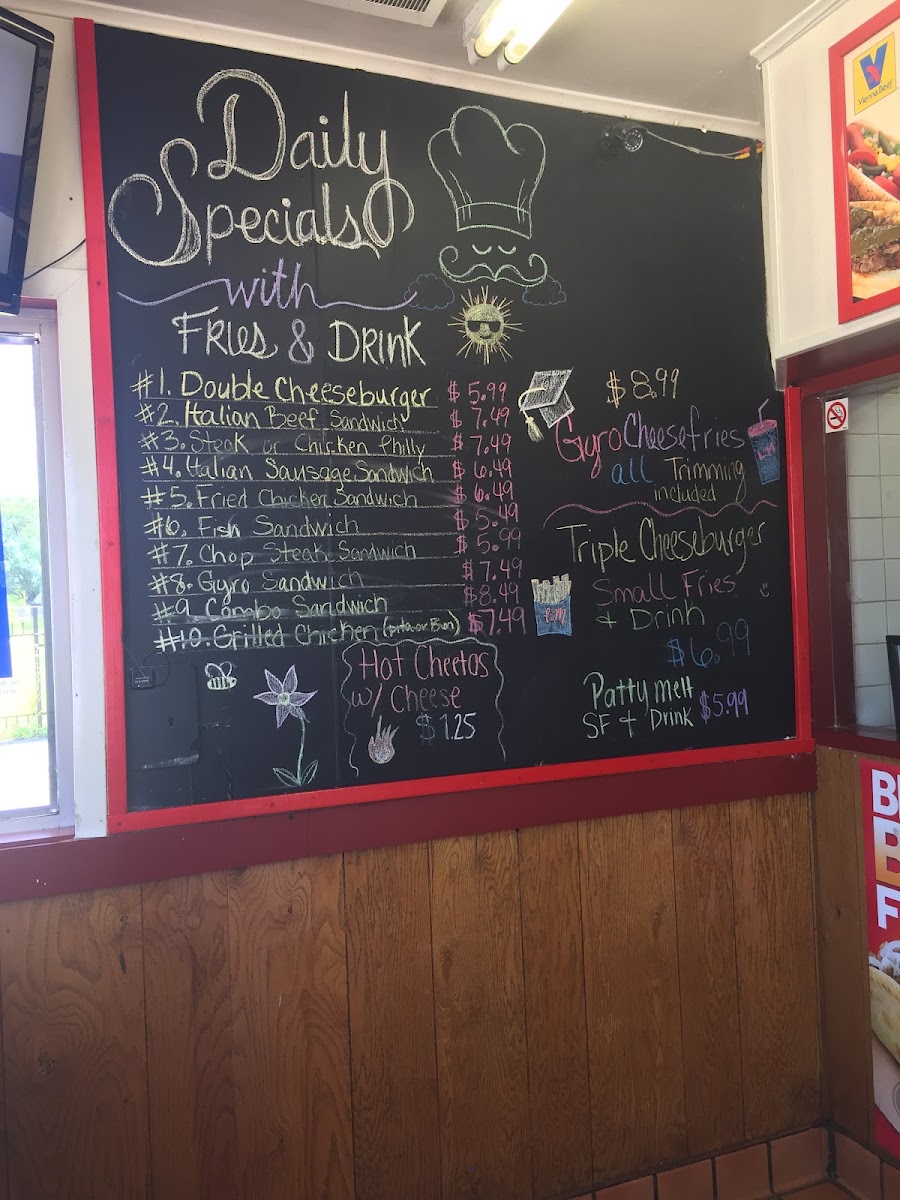 Daily
Specials
with
FRIES & DRINK
#1. Double Cheeseburger $5.99
#2. Italian Beef Sandwich $7.49
#3. Steak or Chicken Philly $7.49
#4. Italian Sausage Sandwich $6.49
#5. Fried Chicken Sandwich $6.49
#6. Fish Sandwich $5.49
#7. Chop Steak Sandwich $5.99
#8. Gyro Sandwich $7.49
#9. Combo Sandwich $8.49
#10. Grilled Chicken (pita or Bun) $7.49
Hot Cheetos
w/ Cheese
$1.25
$8.99
Gyro Cheesefries
all Trimming
included
Triple Cheeseburger
Small Fries
+ Drink
$6.99
Patty melt
SF + Drink $5.99
V
Vienna Beef
B
B
F